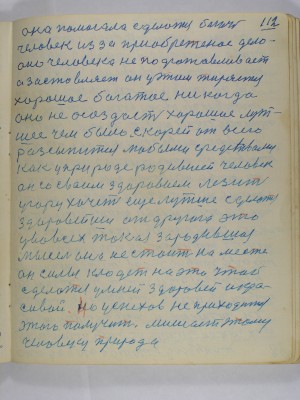 она помогала сделать богато 112
человек из за приобретеное дело
оно человека не подготавливает
а заставляет он этим теряет
хорошое богатое никогда
оно не создаст хорошое лут-
шее чем было скорей от всего
россыпится любыми средствами
как у природе родивший человек
он со своим здоровием лезит
у гору хочет еще лутше сделать
здоровей чем от другого это
у во всех такая зародившая
мысель она не стоит на месте
он силы кладет на это чтоб
сделать умней здоровей и кра-
сивой. Но успехов не приходится
этого получить. мешает этому
человеку природа